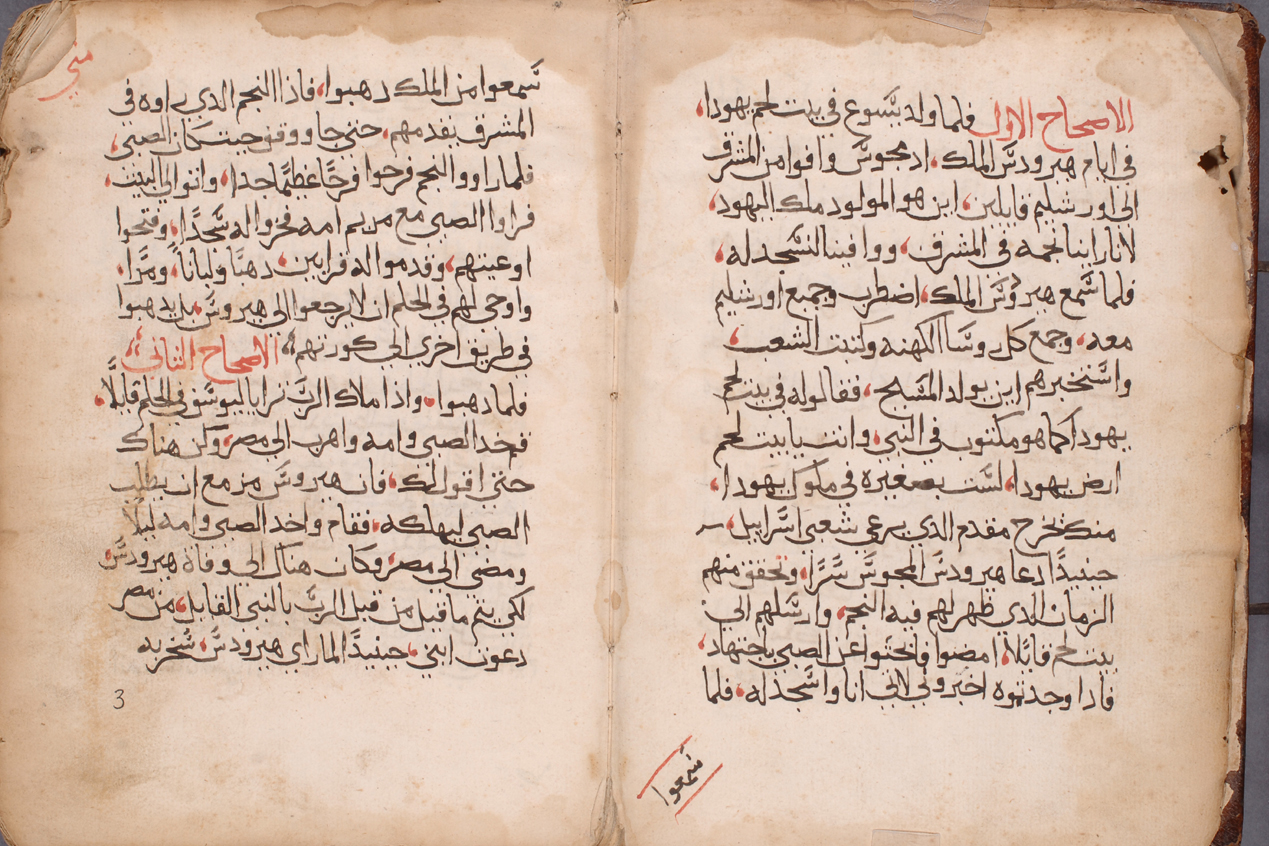 الاصحاح الاول فلما ولد يسوع في بيت لحم يهودا،
في ايام هيرودس الملك، اد مجوس وافوا من المشرق
الى اورشليم قايلين، اين هو المولود ملك اليهود،
لاننا راينا نجمه في المشرق، ووافينا لنسجد له،
فلما سمع هيرودس الملك، اضطرب وجميع اورشليم
معه، وجمع كل روسا الكهنه وكتبت الشعب،
واستخبرهم اين يولد المسيح، فقالوا له في بيت لحم
يهودا كما هو مكتوب في النبي، وانت يا بيت لحم
ارض يهودا، لست بصغيره في ملوك يهودا،
منك يخرج مقدم الدي يرعى شعبي اسراييل،
حينيدا دعا هيرودس المجوس سرا، وتحقق منهم
الزمان الدي ظهر لهم فيه النجم، وارسلهم الى
بيت لحم قايلا، امضوا فابحثوا عن الصبي باجتهاد،
فادا وجدتموه اخبروني لاتي انا واسجد له، فلما
سمعوا
متى
سمعوا من الملك دهبوا، فادا النجم الدي راوه في
المشرق يقدمهم، حتى جا ووقف حيت كان الصبي،
فلما راووا النجم فرحوا فرحا عظيما جدا، واتوا الى البيت،
فراوا الصبي مع مريم امه فخروا له سجدا، وفتحوا
اوعيتهم، وقدموا له قرابين، دهبا ولبانا، ومرا،
واوحي لهم في الحلم ان لا يرجعوا الى هيروس، بل يدهبوا
في طريق اخرى الى كورتهم، الاصحاح الثاني،
فلما دهبوا، وادا ملاك الرب ترايا ليوسف في الحلم قايلا،
قم خد الصبي وامه واهرب الى مصر، وكن هناك
حتى اقول لك، فان هيروس مزمع ان يطلب
الصبي ليهلكه، فقام واخد الصبي وامه ليلا
ومضى الى مصر، وكان هناك الى وفاة هيرودس،
لكي يتم ما قيل من قبل الرب بالنبي القايل، من مصر
دعوت ابني، حينيدا لما راي هيرودس، سخر به
3